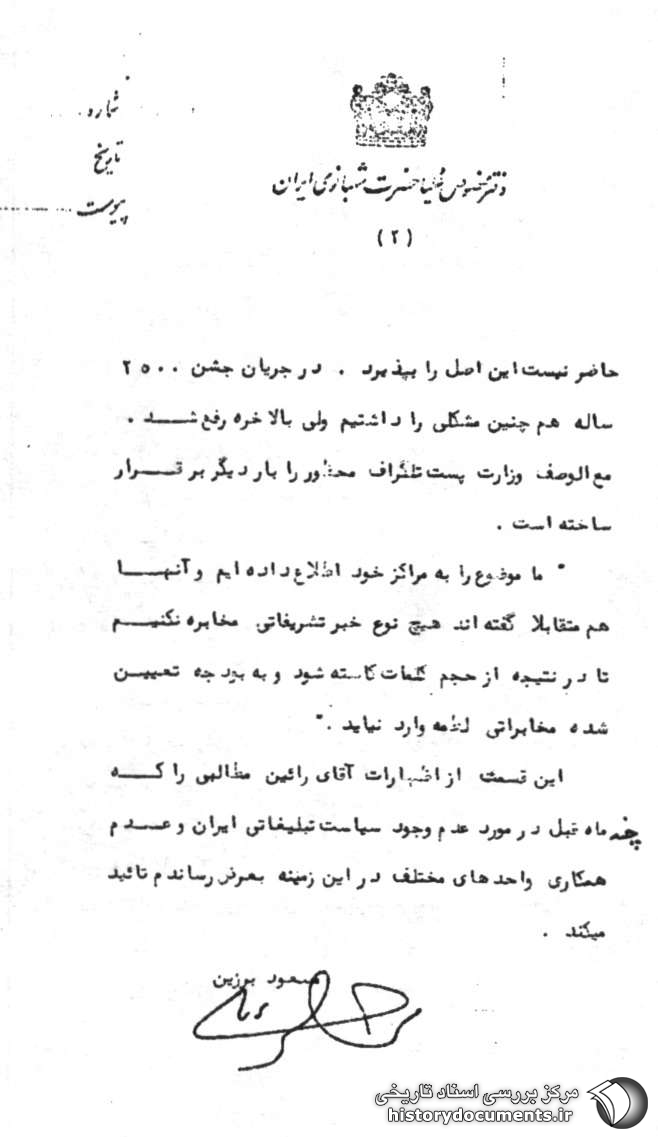 شماره
تاریخ
پیوست
دفتر مخصوص علیاحضرت شهبانوی ایران
(۲)
حاضر نیست این اصل را بپذیرد . در جریان جشن ۲۵۰۰
ساله هم چنین مشکلی را داشتیم ولی بالاخره رفع شد .
مع الوصف وزارت پست تلگراف محظور را بار دیگر برقرار
ساخته است .
" ما موضوع را به مراکز خود اطلاع داده ایم و آنها
هم متقابلا گفته اند هیچ نوع خبر تشریفاتی مخابره نکنیم
تا در نتیجه از حجم کلمات کاسته شود و به بودجه تعیین
شده مخابراتی لطمه وارد نیاید ."
این قسمت از اظهارات آقای رائین مطالبی را که
چند ماه قبل در مورد عدم وجود سیاست تبلیغاتی ایران و عدم
همکاری واحدهای مختلف در این زمینه بعرض رساندم تائید
میکند .
مسعود برزین
مرکز بررسی اسناد تاریخی
historydocuments.ir